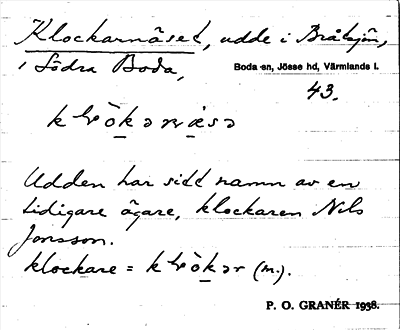 Klockarnäset, udde i Bråtsjön,
i Södra Boda,
Boda sn, Jösse hd, Värmlands l.
43.
Udden har sitt namn av en
tidigare ägare, klockaren Nils
Jonsson.
klockare = (m.).
P. O. GRANÉR 1938.